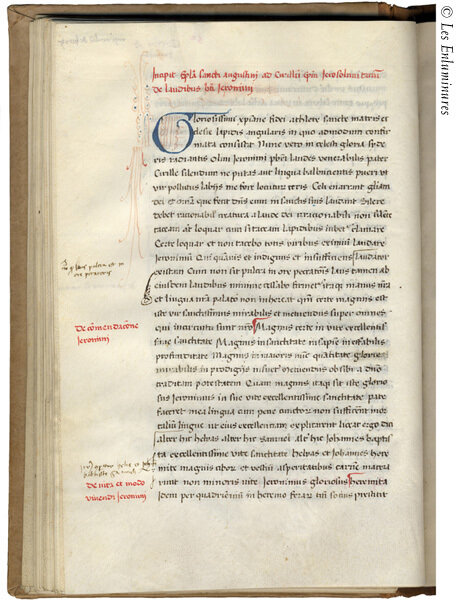 Incipit epl̃a sancti augustini ad Cirillũ ep̃m Jerosolimitanũ
de laudibus btĩ Jeronimi
Gloriosissimi xp̃iane fidei athlete sancte matris ec
clesie lapidis angularis in quo admodum confir
mata consistit Nunc vero in celesti gloria syde
ris radiantis olim Jeronimi pbr̃i laudes venerabilis pater
Cirille silendum me putas aut lingua balbucientis pueri ut
vir pollutis labijs me fore locuturũ Celi enarrant gliam
dei et om̃ia que fecit dñs eum in sanctis suis laudant Silere
debet rationabilis creatura a laude dei irracionabili non silente
taceam aũt loquar cum si taceam lapidibus iubeor clamare
Certe loquar et non tacebo totis viribus eximiũ laudare
Jeronimũ Qui quamvis et indignus et insufficiens laudator
existam Cum non sit pulcra in ore peccatoris laus tamen ab
eiusdem laudibus minime cessabo firmetur itaqꝫ manus mea
et lingua mea palato non inhereat quĩ certe magnus est
iste vir sanctissimus mirabilis et metuendus super omnes
qui in circuitu sunt nr̃o Magnus certe in vite excellentis
sime sanctitate Magnus in sanctitate in sapiencie ineffabilis
profunditate Magnus in maioris nũc quantitate glorie
mirabilis in prodigijs insuetis Metuendus ob sibi a dño
traditam potestatem Quam magnus itaqꝫ sit iste glorio
sus Jeronimus in sue vite excellentissime sanctitate pate
faceret mea lingua cum pene cunctorum non sufficerent mor
talium lingue ut eius excellentiam explitarent liceat ergo dici
alter hic helyas alter hic samuel alt̃ hic Johannes baptis
ta excellentissime vite sanctitate helyas et Johannes here
mite magnis cibor̃ et vestiũ asperitatibus carnẽ macera
runt non minoris vite Jeronimus gloriosus heremita
Idem per quadrienniũ in heremo ferar̃ tm̃ socius perstitit
De cõmendacõne
Jeronimi
De vita et modo
vivendi Jeronimi
© Les Enluminures